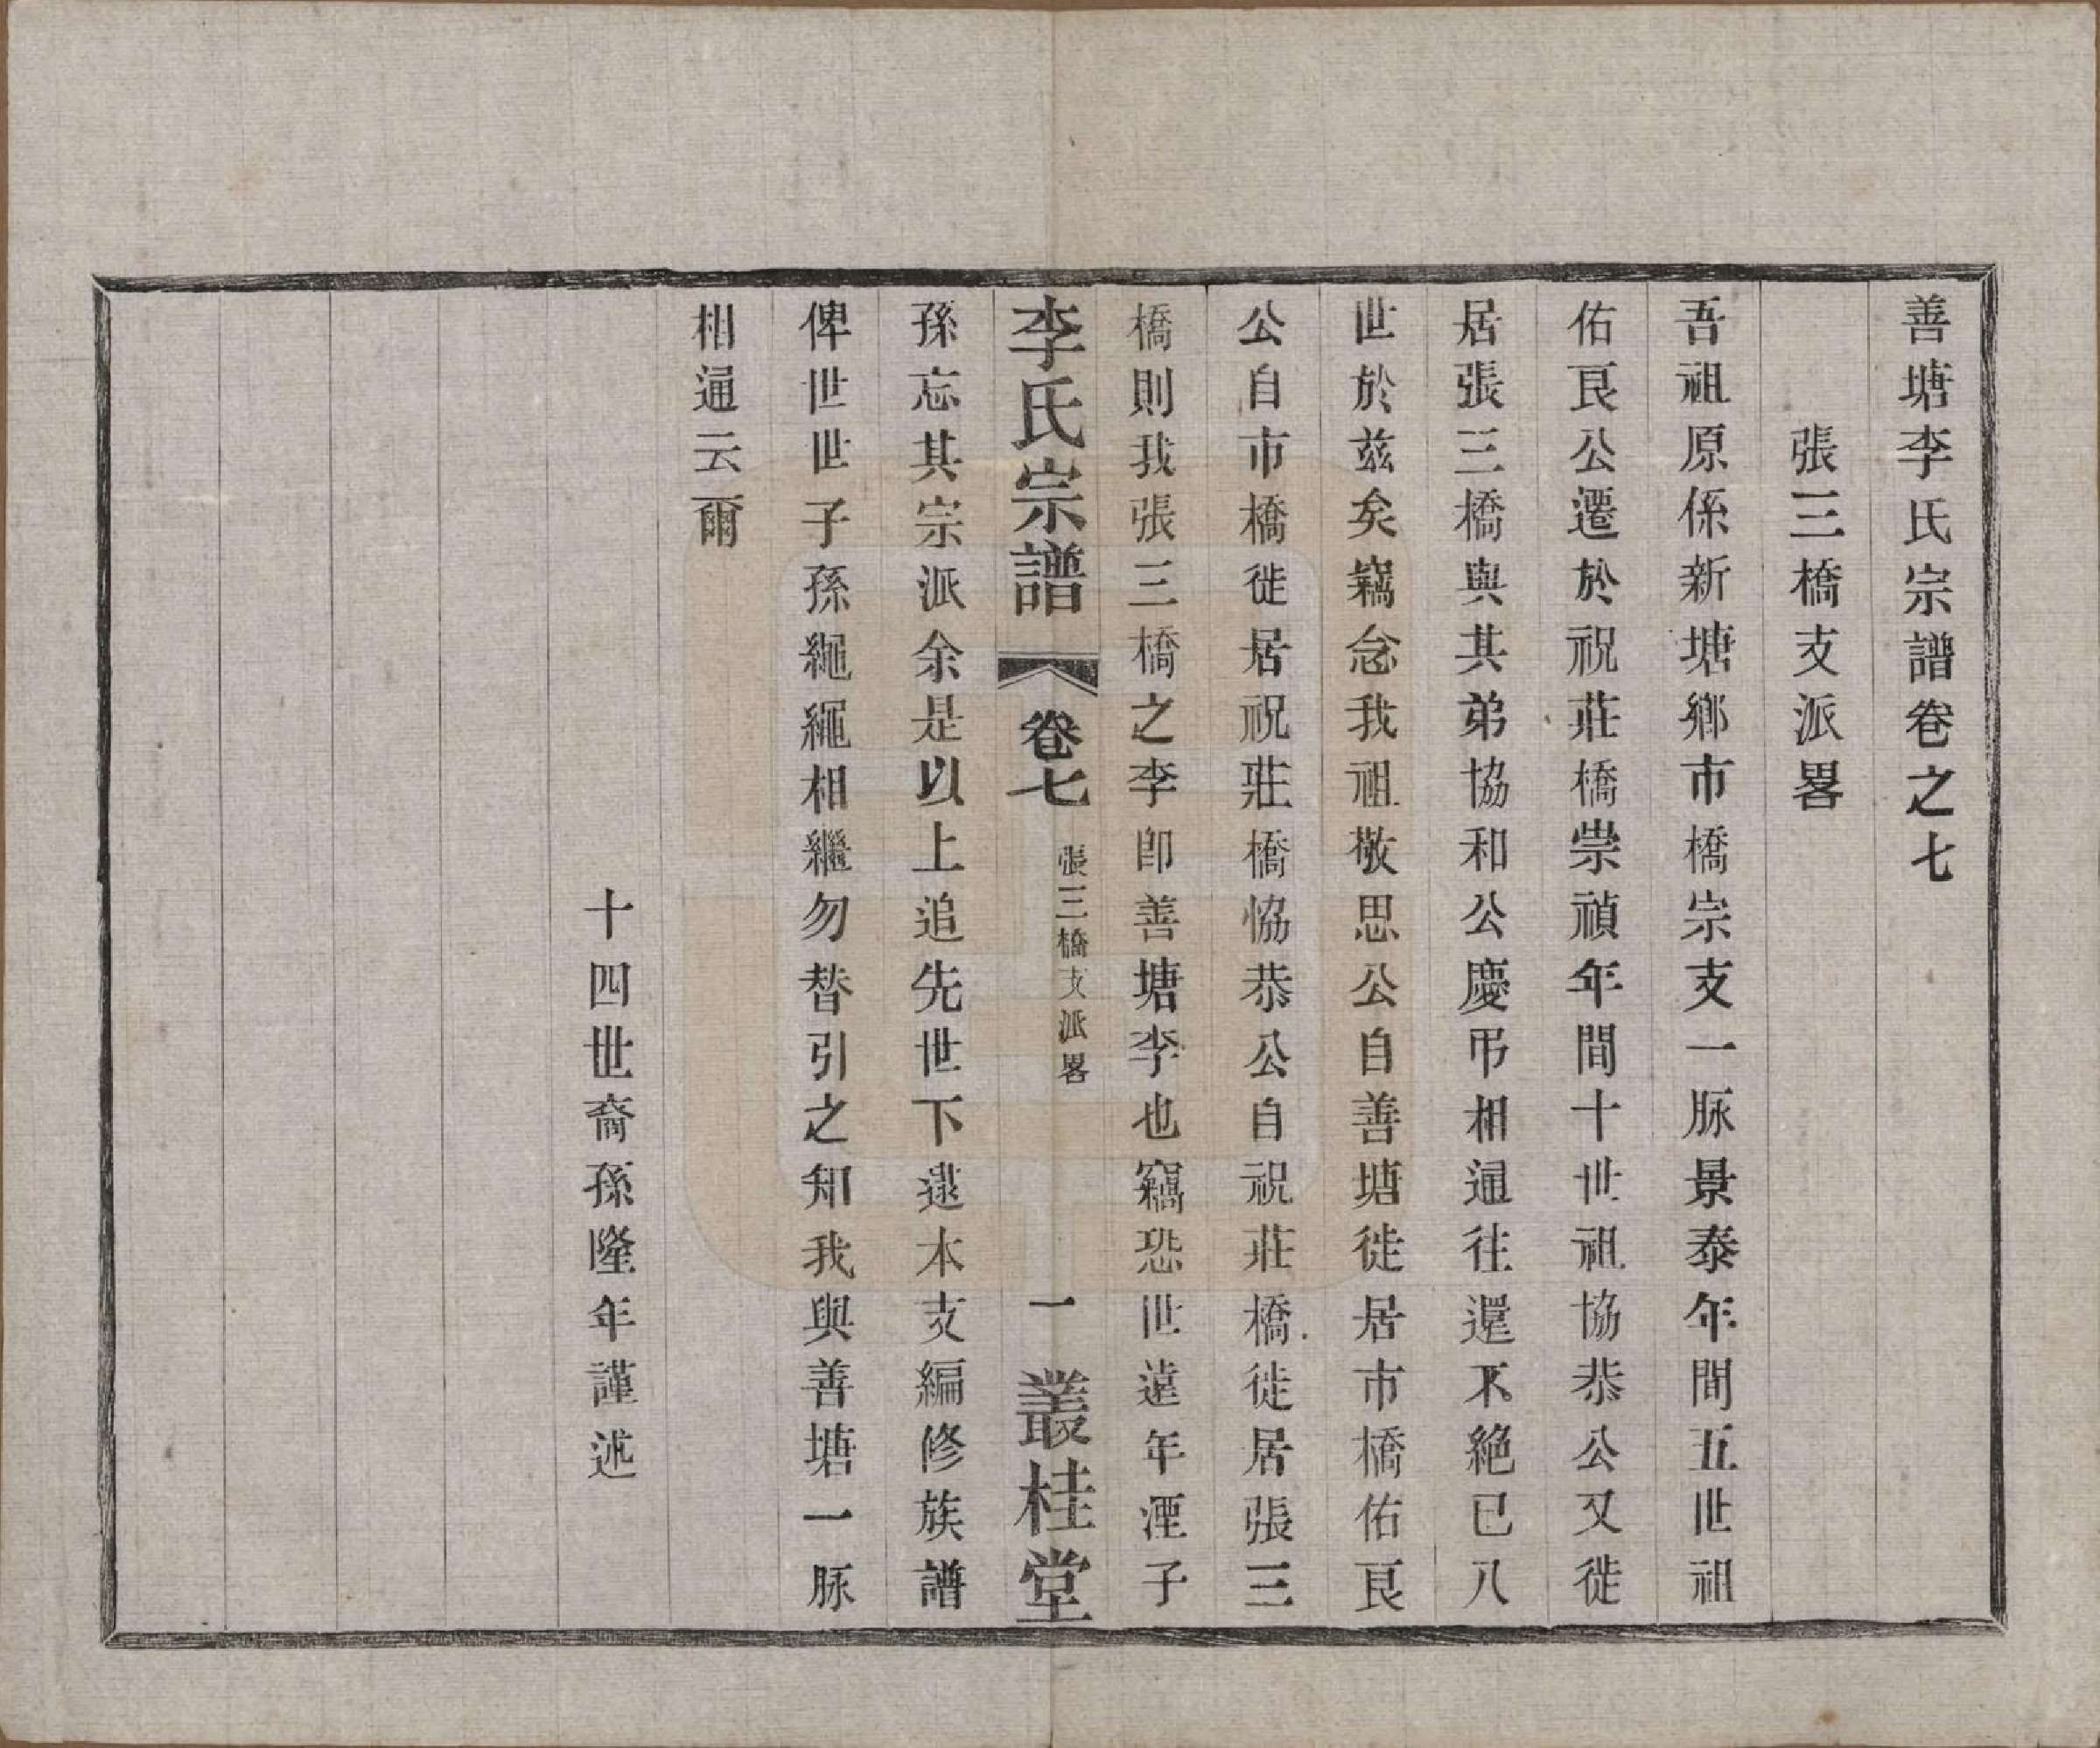 善塘李氏宗譜卷之七
張三橋支派畧
吾祖原係新塘鄉市橋宗支一脉景泰年間五世祖
佑艮公遷於祝莊橋崇禎年間十世祖協恭公又徙
居張三橋與其弟協和公慶弔相通往還不絕已八
世於兹矣竊念我祖敬思公自善塘徙居市橋佑艮
公自市橋徙居祝莊橋恊恭公自祝莊橋徙居張三
橋則我張三橋之李卽善塘李也竊恐世遠年湮子
李氏宗譜 卷七 張三橋支派畧 一 叢桂堂
孫忘其宗派余是以上追先世下逮本支編修族譜
俾世世子孫繩繩相繼勿替引之知我與善塘一脉
相通云爾
十四世裔孫隆年謹述